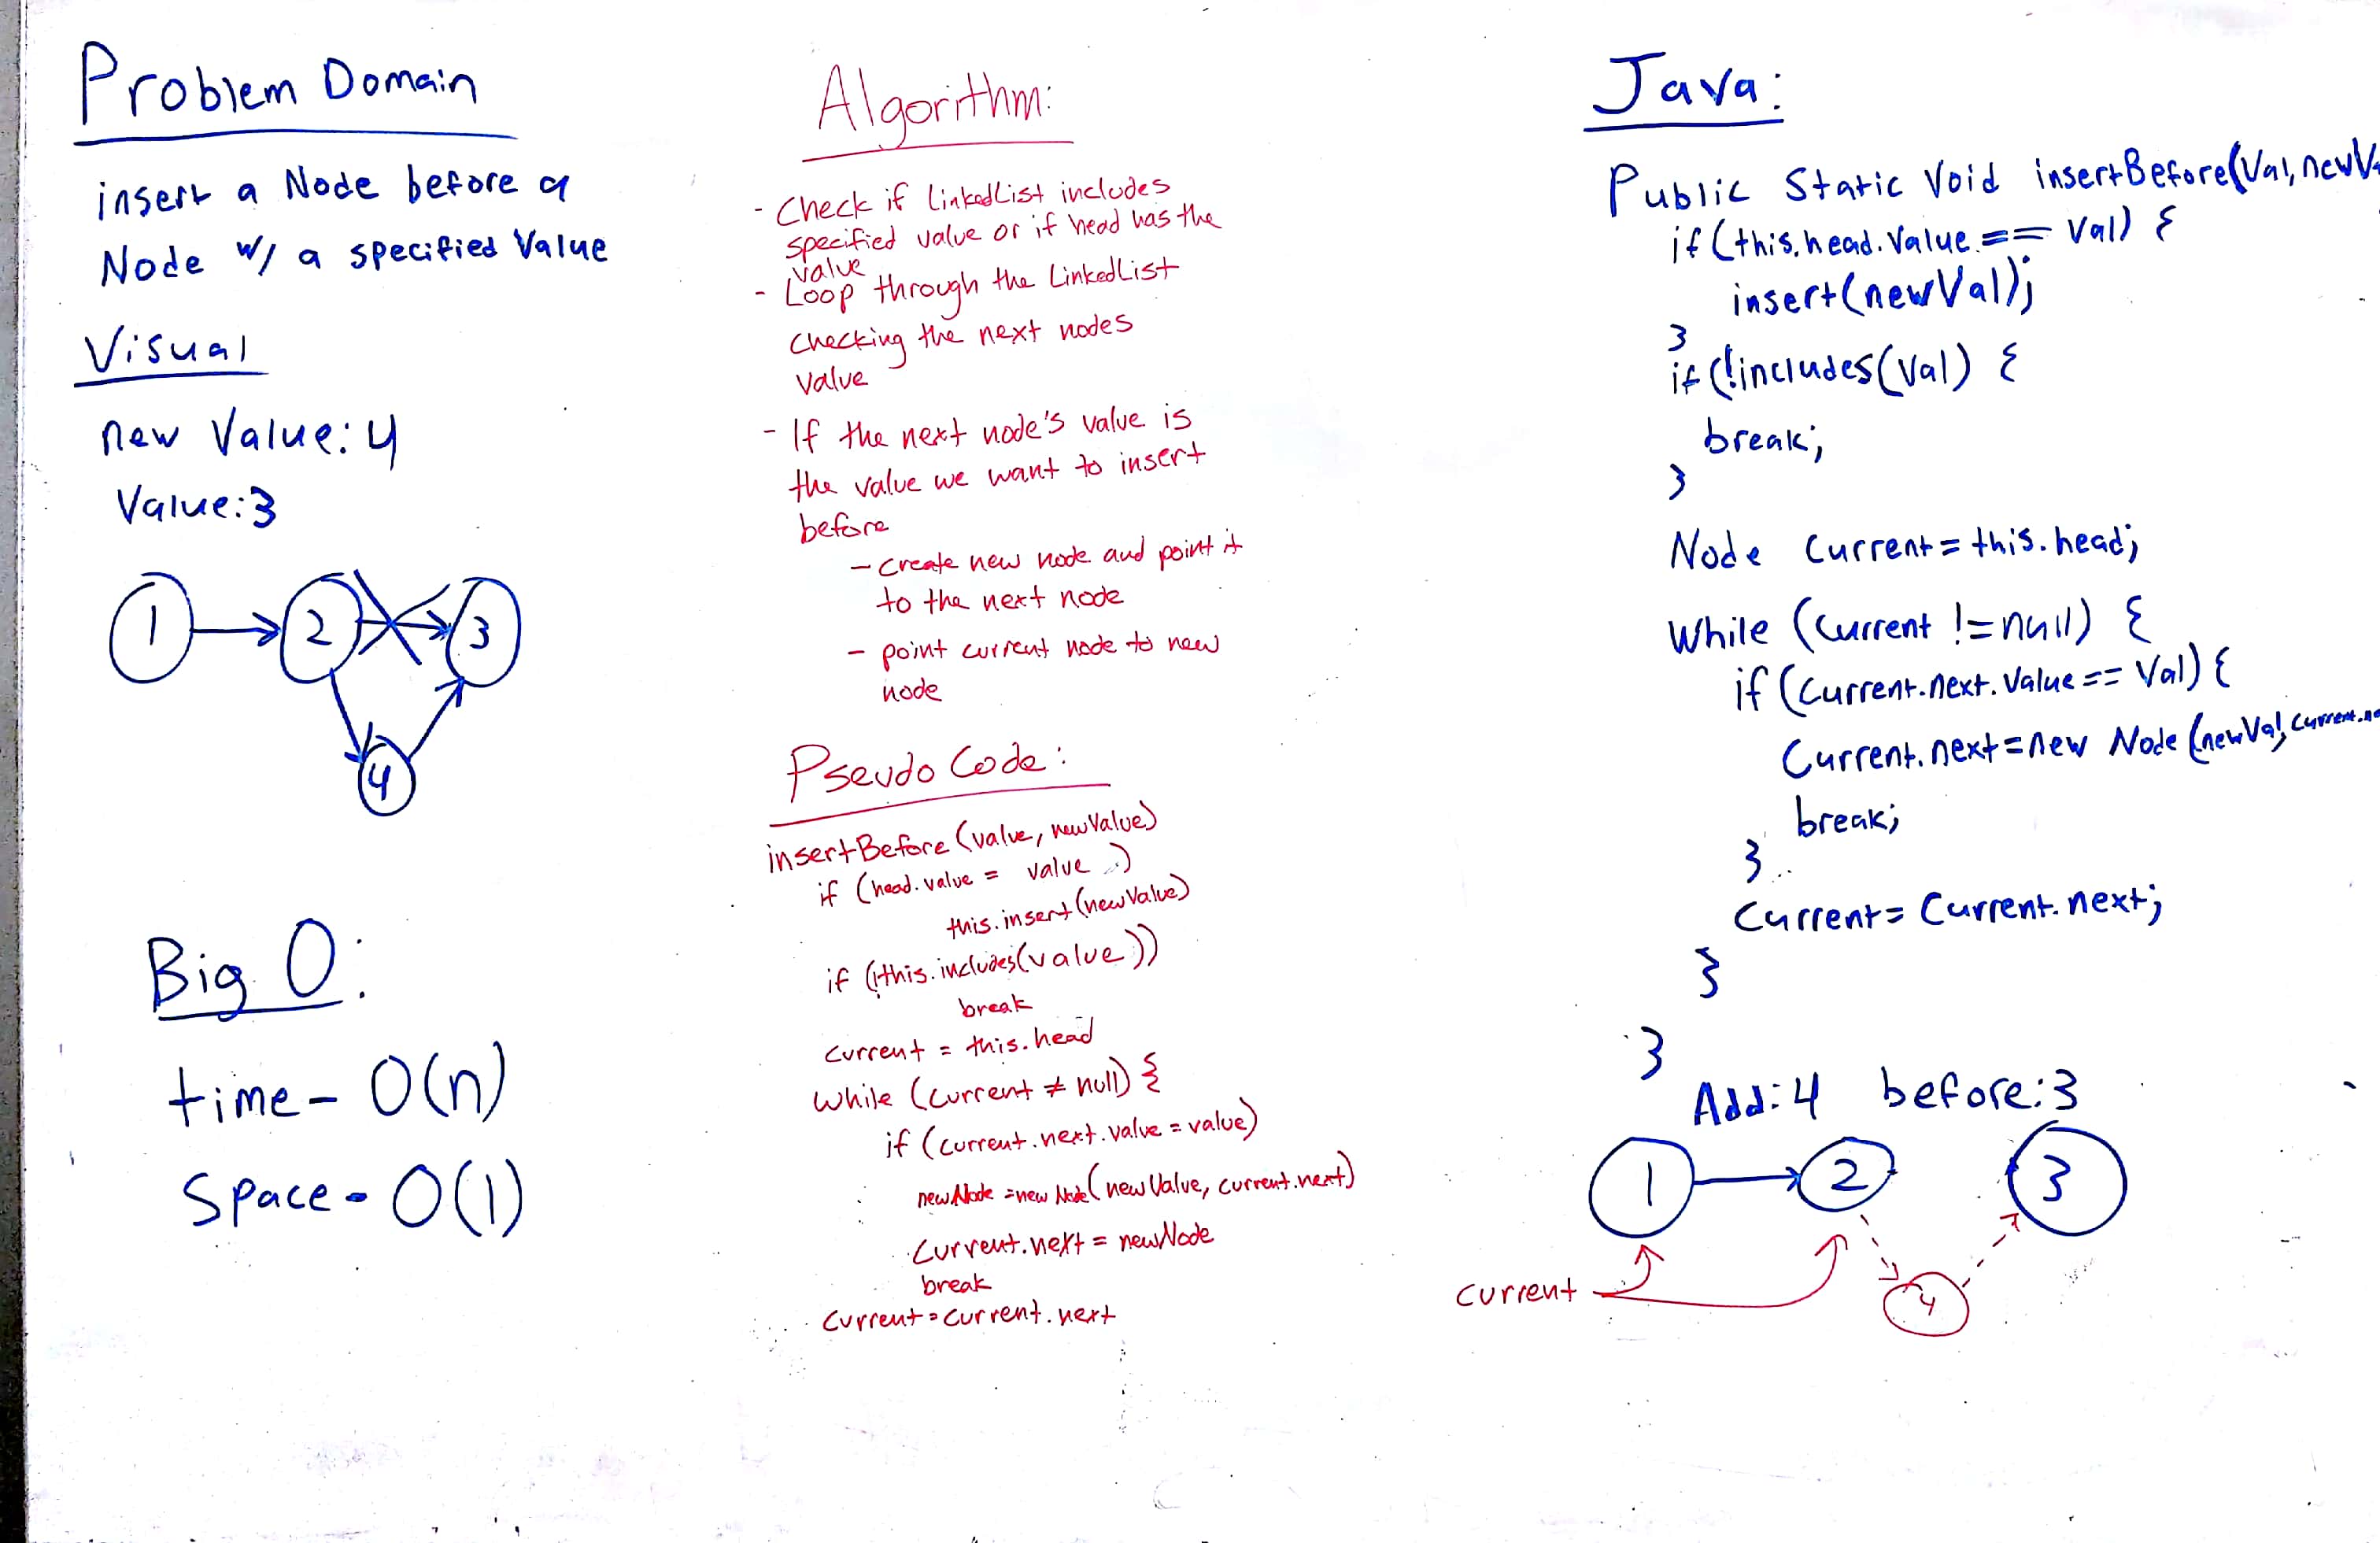 Problem Domain
insert a Node before a
Node w/ a specified Value
Visual
new Value: 4
Value: 3
1
2
3
4
Big O:
time - O(n)
Space - O(1)
Algorithm:
- Check if LinkedList includes
specified value or if head has the
value
- Loop through the LinkedList
checking the next nodes
value
- If the next node's value is
the value we want to insert
before
- create new node and point it
to the next node
- point current node to new
node
Pseudo Code:
insertBefore (value, newValue)
if (head.value = value )
this.insert(newValue)
if (!this.includes(value))
break
current = this.head
while (current ≠ null) {
if (current.next.value = value)
newNode = new Node(newValue, current.next)
current.next = newNode
break
current = current.next
Java:
Public Static Void insertBefore(Val, newV
if (this.head.Value == Val) {
insert(newVal);
}
if (!includes(Val) {
break;
}
Node Current = this.head;
While (Current != null) {
if (Current.next.Value == Val) {
Current.next = new Node (newVal, Current.ne
break;
}
Current = Current.next;
}
}
Add: 4 before: 3
1
2
3
current
4